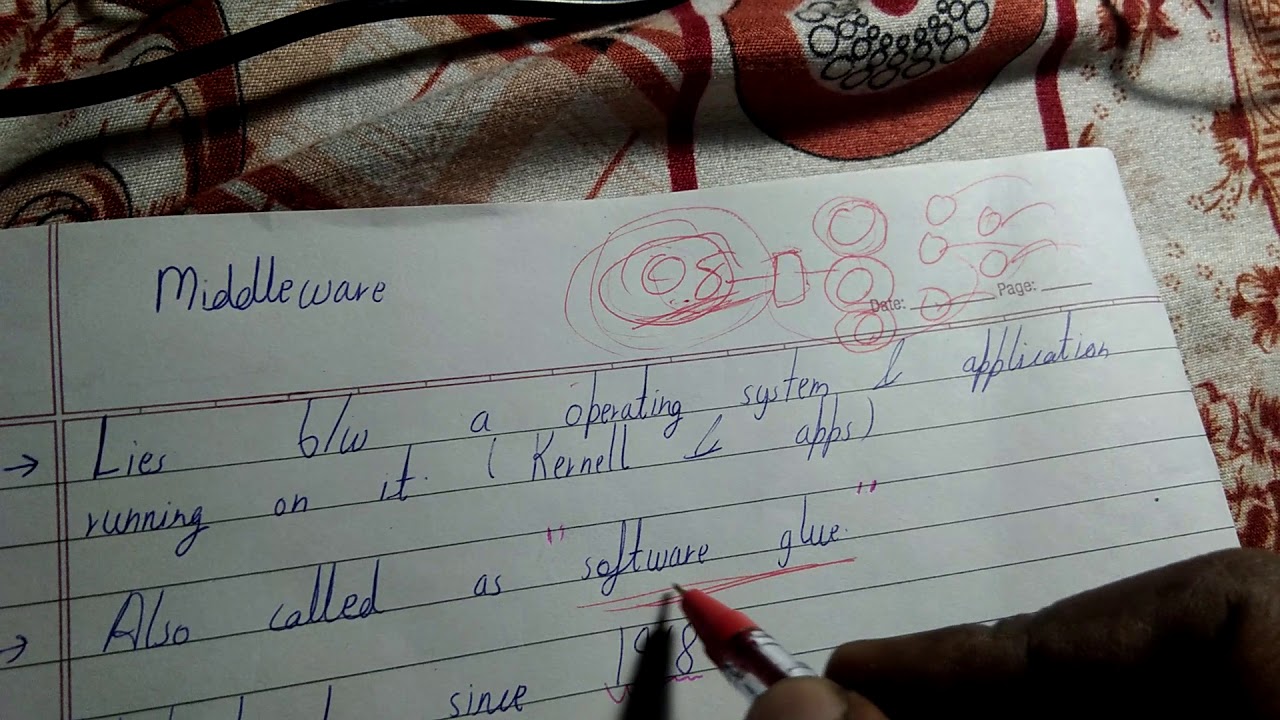 Middleware
Date: Page:
→ Lies b/w a operating system & application
running on it. ( Kernell & apps)
→ Also called as "software glue."
since